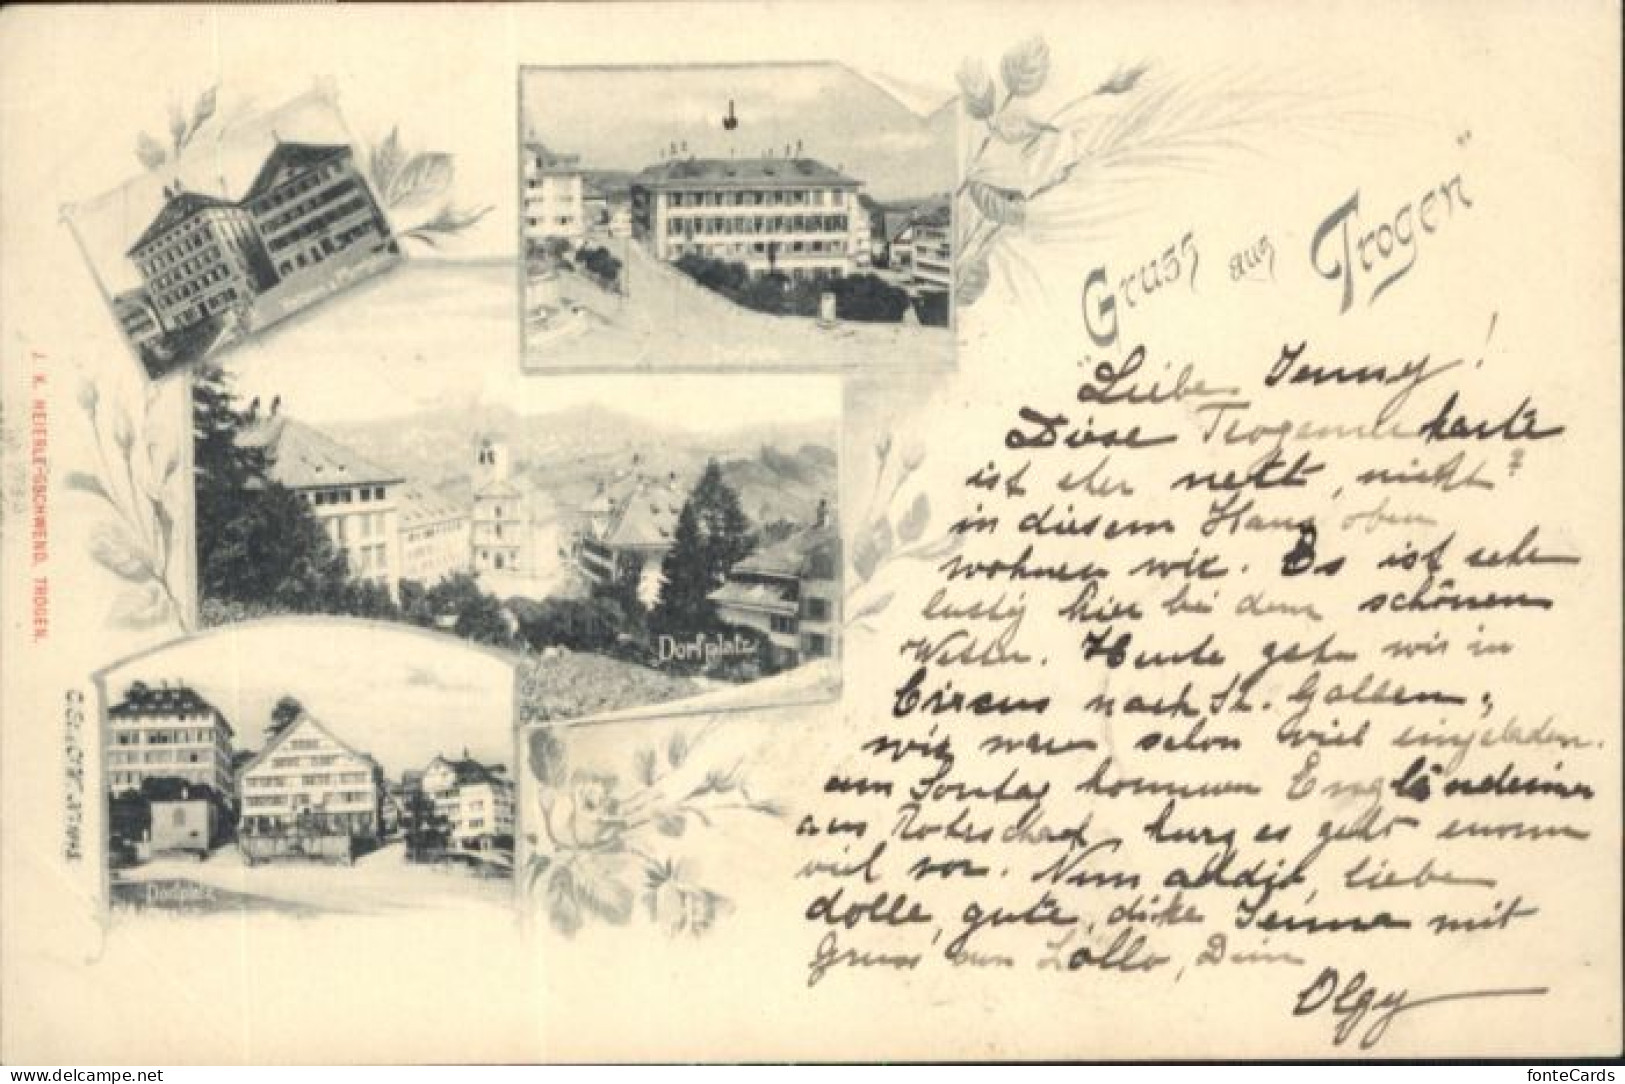 Gruss aus Trogen
Liebe Jenny!
Diese Trogenerkarte
ist eher nett, nicht?
in diesem Haus oben
wohnen wir. Es ist sehr
lustig hier bei dem schönen
Wetter. Heute gehn wir in
Circus nach St. Gallen;
wir schon viel eingeladen.
am Sontag kommen Engländerinnen
aus kurz es geht enorm
viel vor. Nun addio, liebe
dolle, gute, dicke mit
Gruss von Lollo, Dein
Olgy
Dorfplatz
Dorfplatz
J. K. HEIERLE-GSCHWEND, TROGEN.
https://www.delcampe.net
fonteCards